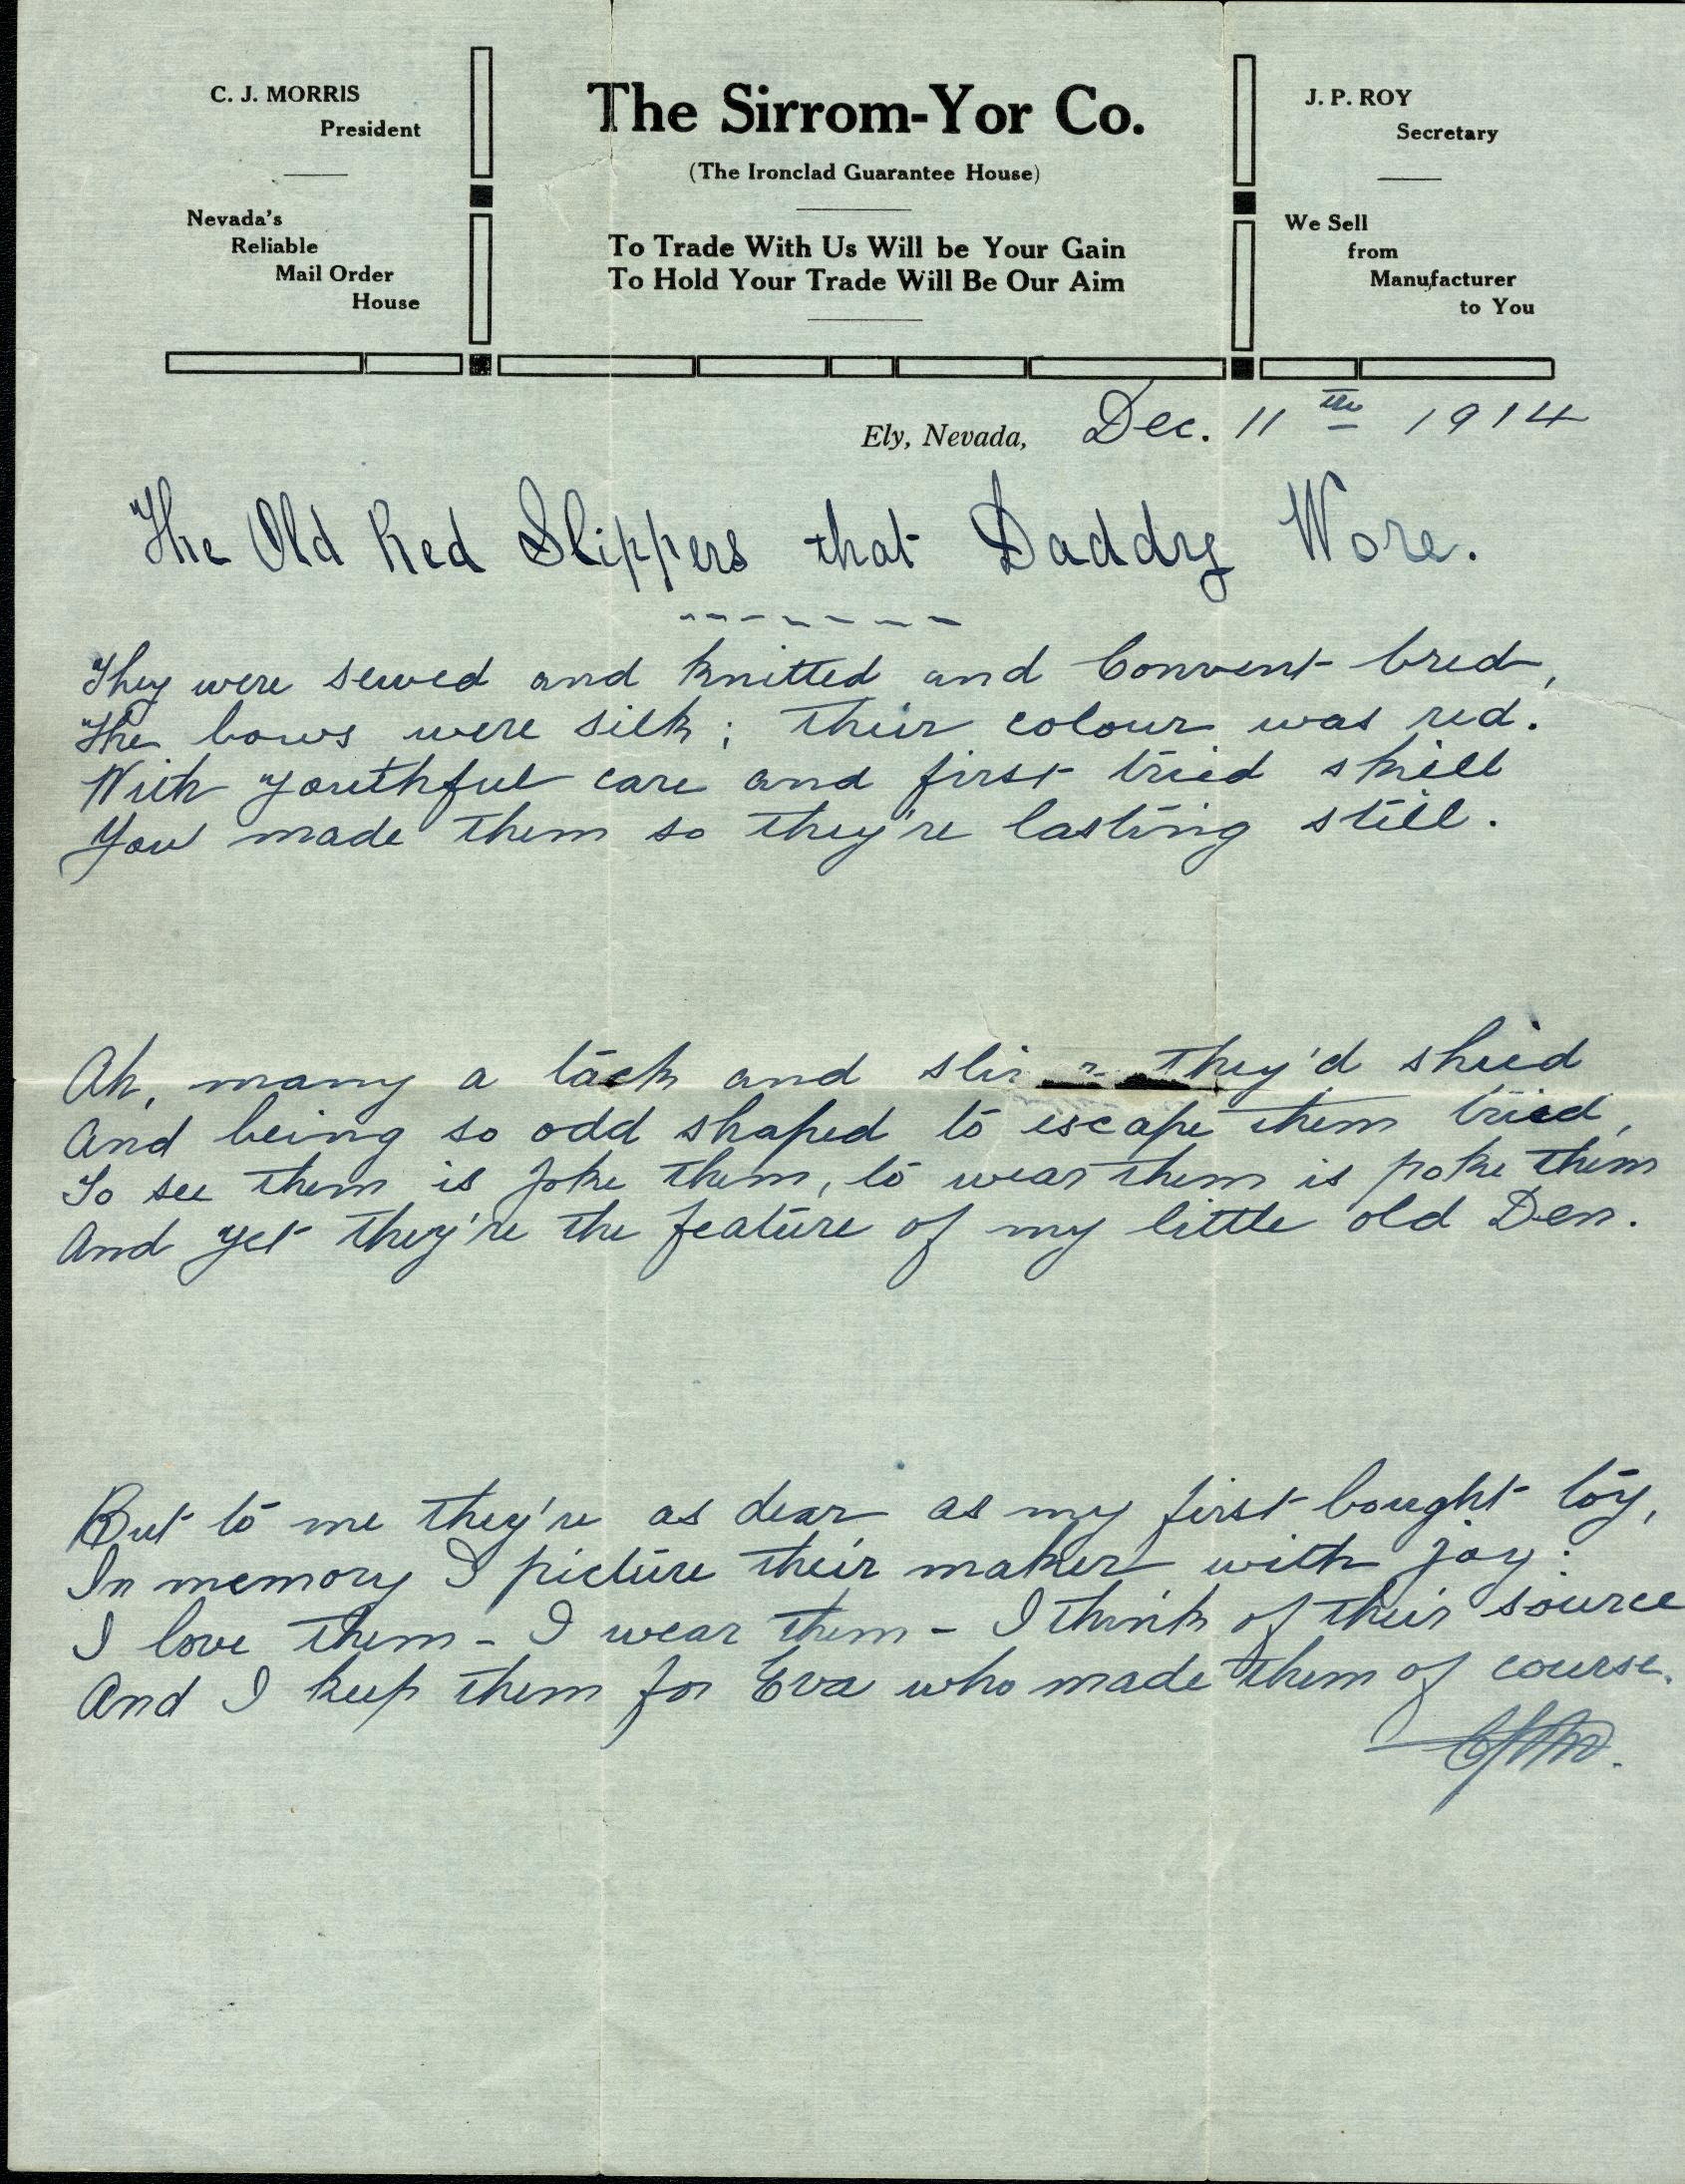 C. J. MORRIS
President
Nevada's
Reliable
Mail Order
House
The Sirrom-Yor Co.
(The Ironclad Guarantee House)
To Trade With Us Will be Your Gain
To Hold Your Trade Will Be Our Aim
J. P. ROY
Secretary
We Sell
from
Manufacturer
to You
Ely, Nevada, Dec. 11th 1914
The Old Red Slippers that Daddy Wore.
They were sewed and knitted and Convent bred,
The bows were silk; their colour was red.
With youthful care and first tried skill
You made them so they're lasting still.
Ah, many a tack and they'd shied
And being so odd shaped to escape them tried,
To see them is joke them, to wear them is poke them
And yet they're the feature of my little old Den.
But to me they're as dear as my first bought toy,
In memory I picture their maker with joy:
I love them - I wear them - I think of their source
And I keep them for Eva who made them of course.